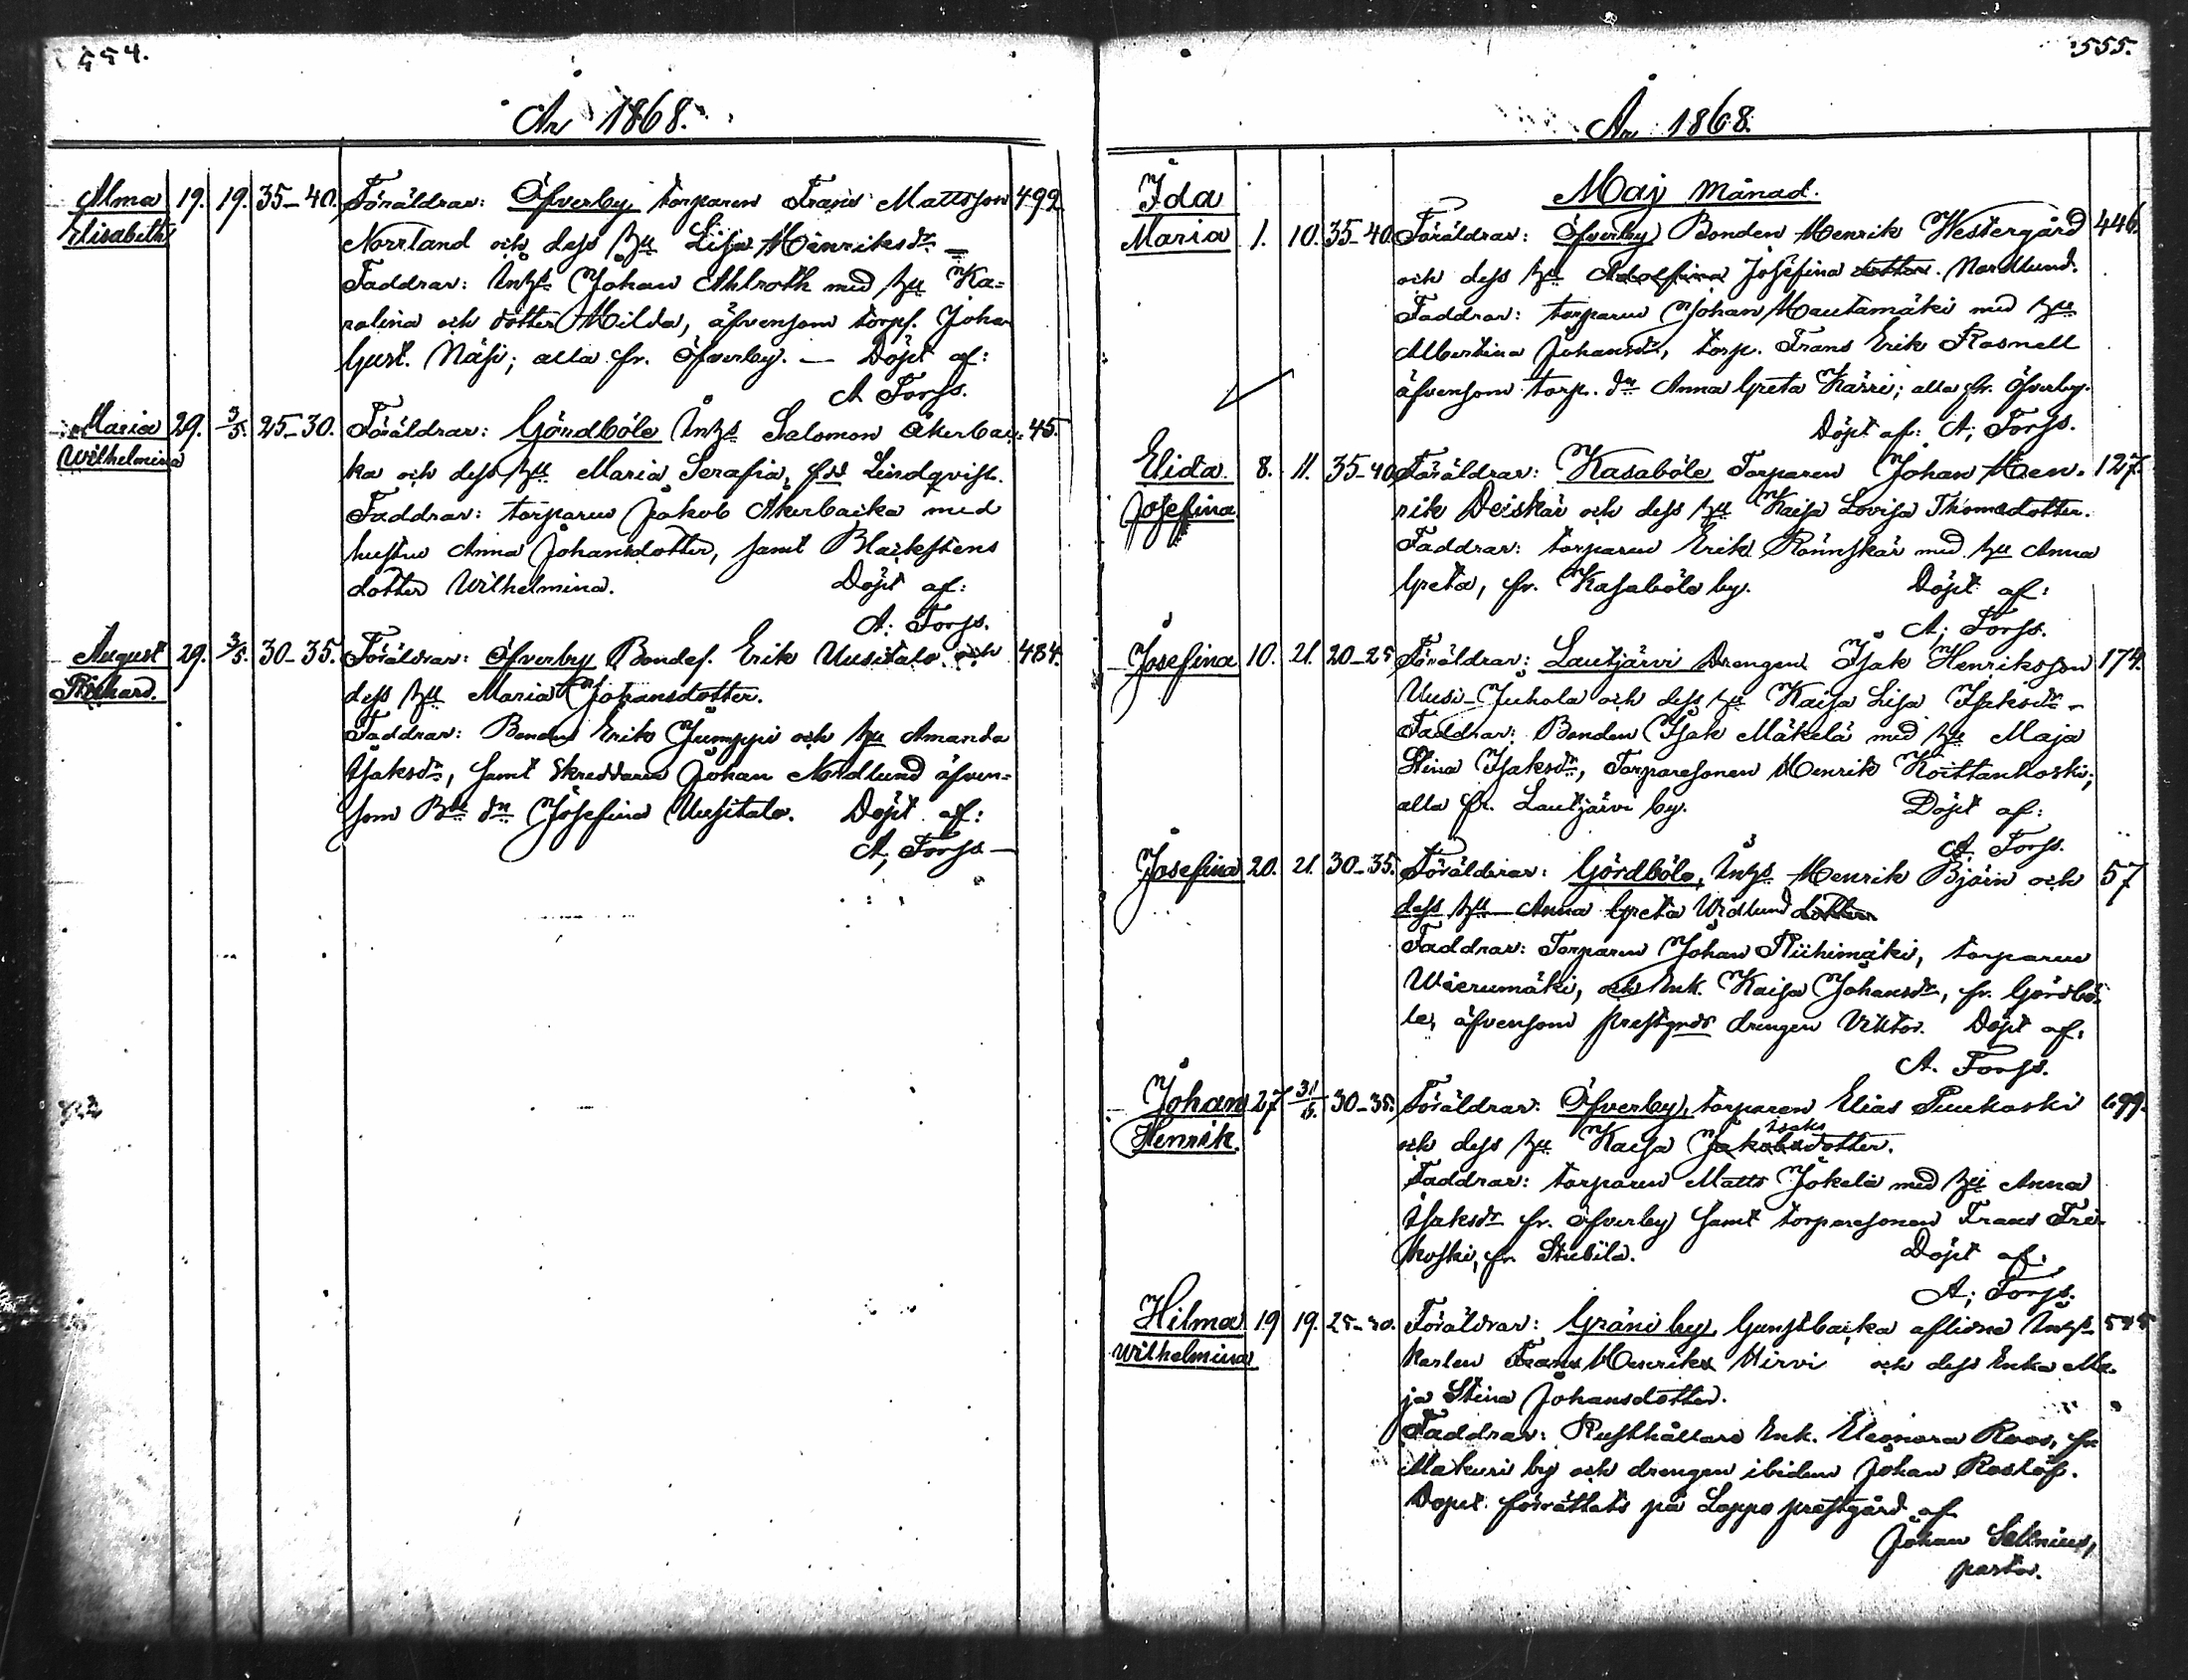 554.
År 1868.
Alma 19. 19. 35-40. Föräldrar: Öfverby torparen Frans Mattsson 492.
Elisabeth Norrland och dess hu Lisa Henriksdr
Faddrar: Inhs Johan Ahlroth med hu Ka=
rolina och dotter Hilda, äfvensom torps. Johan
Gust. Näsi; alla fr. Öfverby. — Döpt af:
A Forss.
Maria 29. 3/5. 25-30. Föräldrar: Gördböle Inhs Salomon Åkerbac- 45.
Wilhelmina ka och dess hu Maria Serafia, född Lindqvist.
Faddrar: torparen Jakob Åkerbacka med
hustru Anna Johansdotter, samt
dotter Wilhelmina. Döpt af:
A. Forss.
August 29. 3/5. 30-35. Föräldrar: Öfverby Bondes. Erik Uusitalo och 484.
Rikhard. dess hu Maria Johansdotter.
Faddrar: Bonden Erik Jumppi och hu Amanda
Isaksdr, samt Skreddaren Johan Nordlund äfven=
som Bde dr Josefina Uusitalo. Döpt af:
A, Forss —
555.
År 1868.
Maj månad.
Ida
Maria 1. 10. 35-40 Föräldrar: Öfverby Bonden Henrik Westergård 446.
och dess hu Adolfina Josefina dotter. Nordlund.
Faddrar: torparen Johan Hautamäki med hu
Albertina Johansdr, torp. Frans Erik Rosnell
äfvensom torp. dr Anna Greta Kärri; alla fr. Öfverby.
Döpt af: A; Forss.
Elida 8. 11. 35-40 Föräldrar: Kasaböle Torparen Johan Hen- 127.
Josefina rik Deiskär och dess hu Kaisa Lovisa Thomsdotter.
Faddrar: torparen Erik Rönnskär med hu Anna
Greta, fr. Kasaböle by. Döpt af:
A; Forss.
Josefina 10. 21. 20-25 Föräldrar: Lautjärvi Drengen Isak Henriksson 174.
Uusi-Juhola och dess hu Kaisa Lisa Isaksdr -
Faddrar: Bonden Isak Mäkelä med hu Maja
Stina Isaksdr, Torparesonen Henrik Koittankoski;
alla fr. Lautjärvi by. Döpt af:
A Forss.
Josefina 20. 21. 30-35. Föräldrar: Gördböle, Inhs Henrik Björn och 57
dess hu Anna Greta Widlund dotter
Faddrar: Torparen Johan Riihimäki, torparen
Wierumäki, och Enk. Kaisa Johansdr, fr. Gördbö-
le, äfvensom prestgårds drengen Viktor. Döpt af:
A. Forss.
Johan 27 31/5. 30-35. Föräldrar: Öfverby, torparen Elias Puukoski 499.
Isaks
Henrik. och dess hu Kaisa Jakobsdotter.
Faddrar: torparen Matts Jokela med hu Anna
Isaksdr fr. Öfverby samt torparesonen Frans Fri-
koski, fr. Döpt af:
A; Forss.
Hilma 19 19. 25-30. Föräldrar: Gräni by, Gunstbacka aflidne Inhys
Wilhelmina karlen Frans Henriks Hirvi och dess Enka Ma-
ja Stina Johansdotter.
Faddrar: Rusthållare Enk. Eleonora Roos, fr
Makuri by och drengen ibidem Johan Roslöf.
Dopet förrättats på Lappo prestgård af
Johan Sellnius,
pastor.